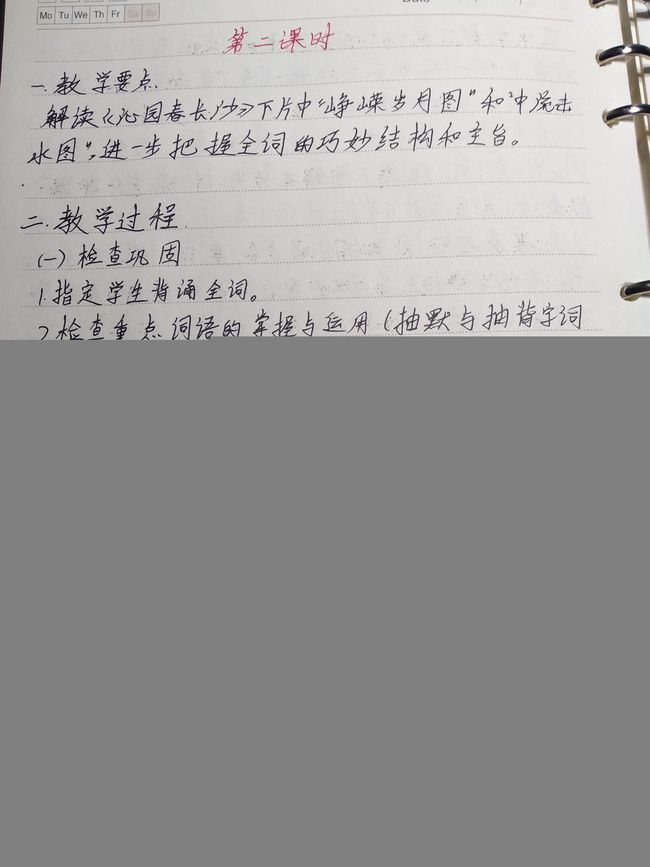 Mo Tu We Th Fr Sa Su
第二课时
一.教学要点.
解读《沁园春长沙》下片中"峥嵘岁月图"和"中流击
水图",进一步把握全词的巧妙结构和主旨。
二.教学过程.
(一)检查巩固
1.指定学生背诵全词。
2.检查重点词语的掌握与运用(抽默与抽背字词